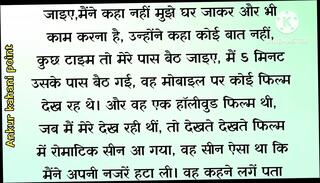 जाइए,मैंने कहा नहीं मुझे घर जाकर और भी
काम करना है, उन्होंने कहा कोई बात नहीं,
कुछ टाइम तो मेरे पास बैठ जाइए, मैं 5 मिनट
उसके पास बैठ गई, वह मोबाइल पर कोई फिल्म
देख रह थे। और वह एक हॉलीवुड फिल्म थी,
जब मैं मेरे देख रही थीं, तो देखते देखते फिल्म
में रोमाटिक सीन आ गया, वह सीन ऐसा था कि
मैंने अपनी नजरें हटा ली। वह कहने लगें पता
Ankur kahani point